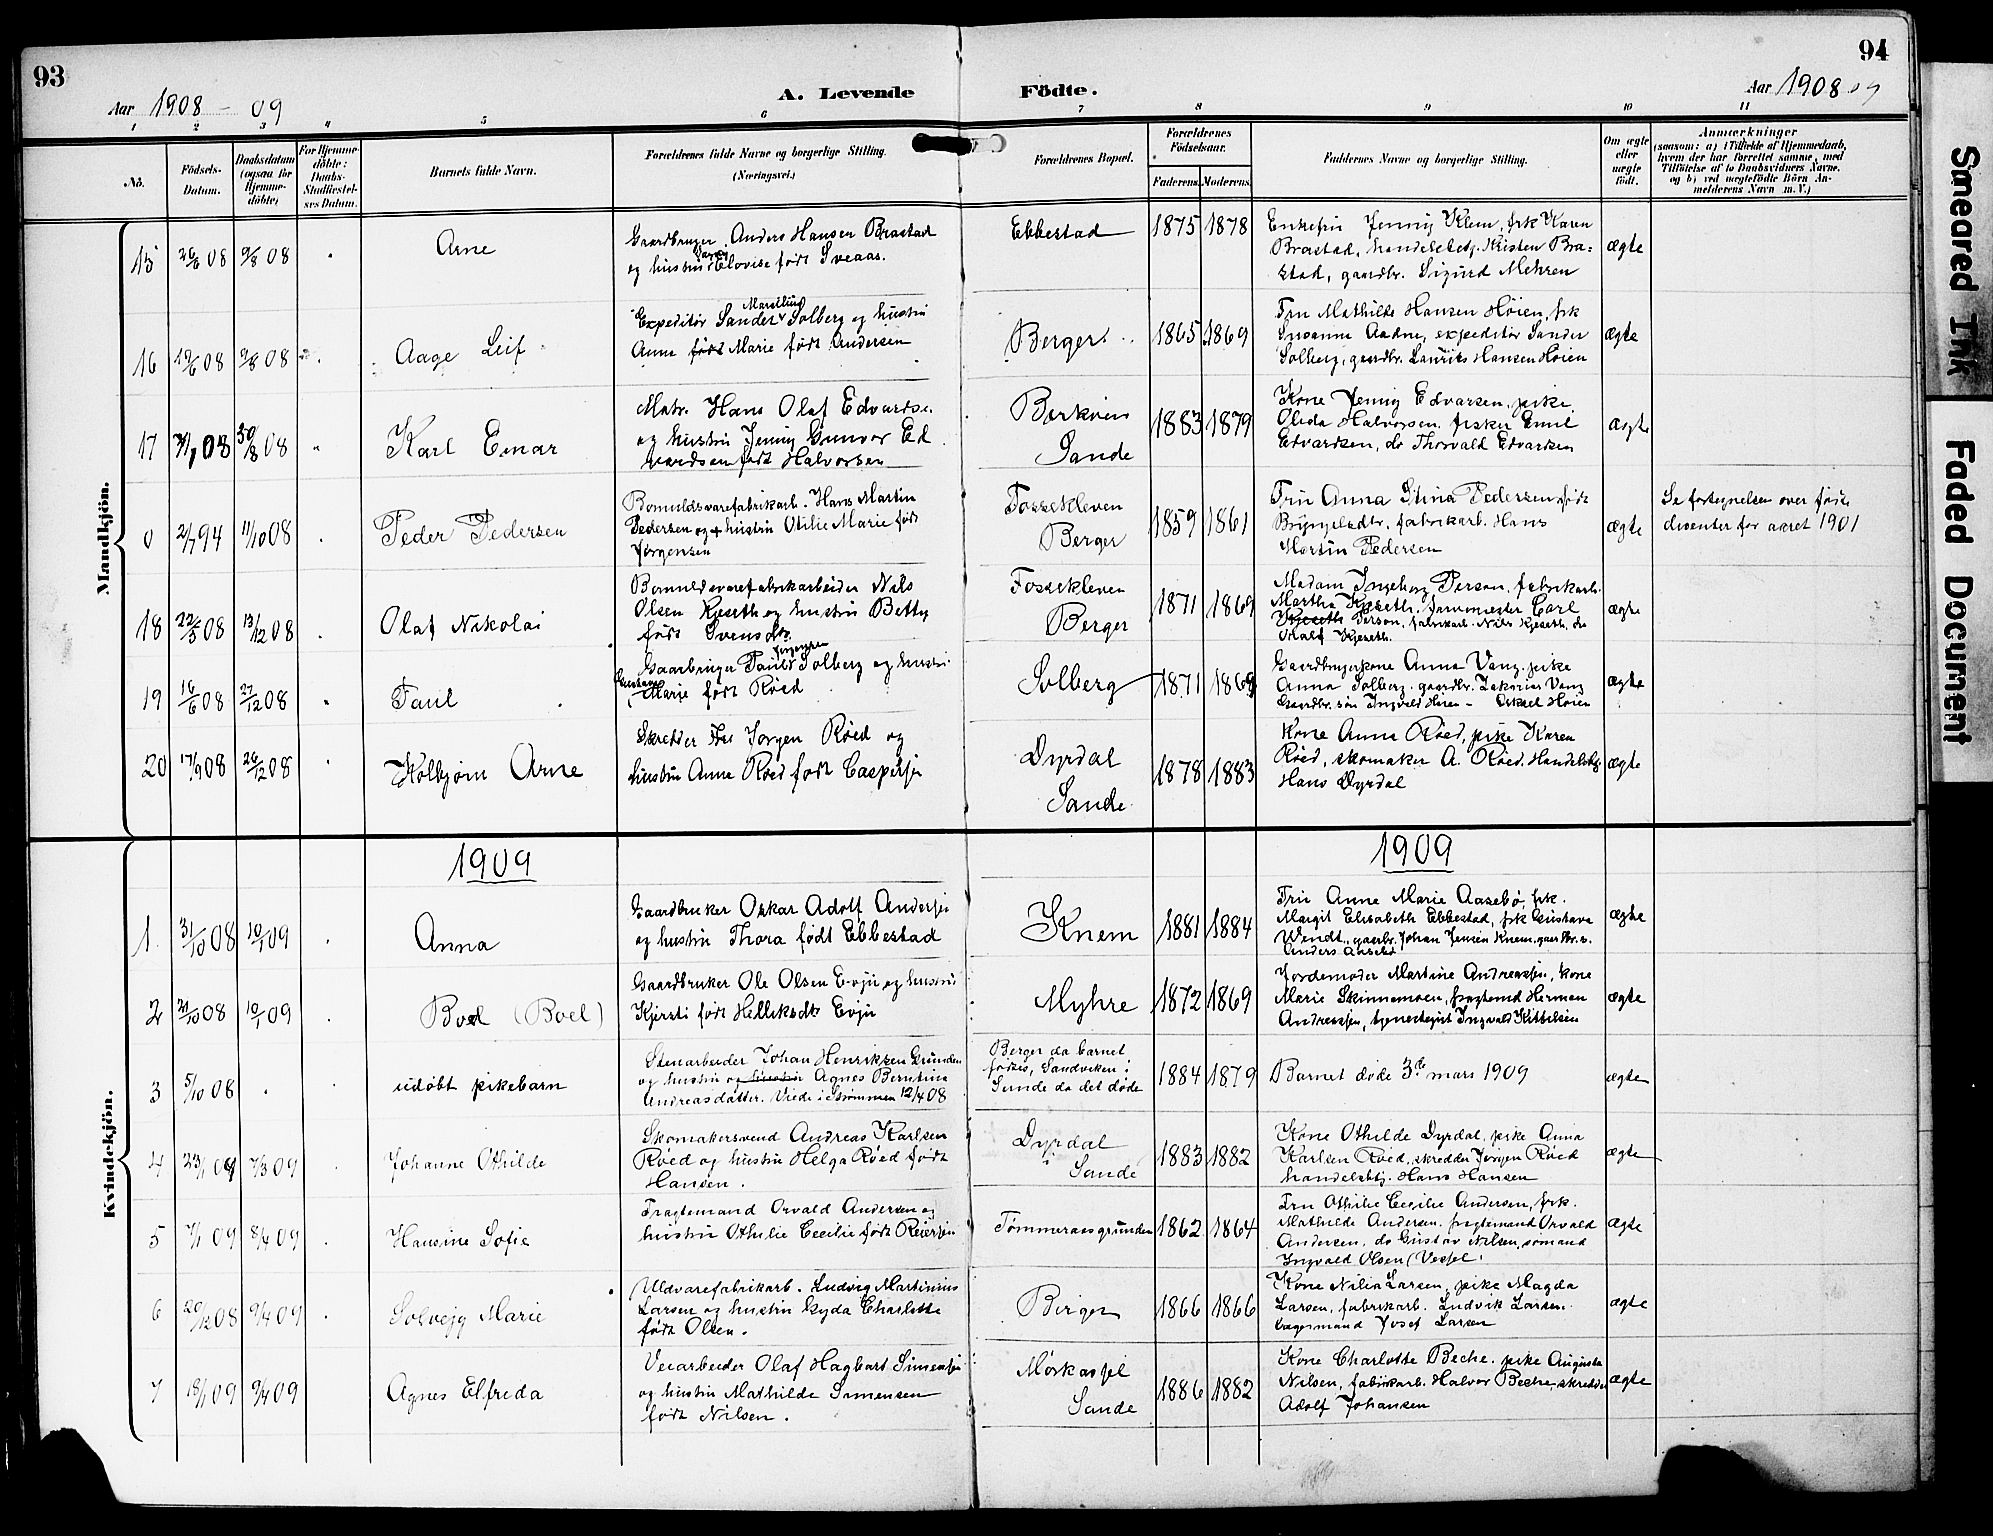 93
Aar 1908 - 09
A. Levende
Födte.
94
Aar 1908 09
1 2 3 4 5 6 7 8 9 10 11
No.
Födsels-
Datum.
Daabsdatum
(ogsaa for
Hjemme-
döbte)
For Hjemme-
döbte:
Daabs-
Stadfæstel-
ses Datum.
Barnets fulde Navn.
Forældrenes fulde Navne og borgerlige Stilling.
(Næringsvei.)
Forældrenes Bopæl.
Forældrenes
Födselsaar.
Faderens.
Moderens.
Faddernes Navne og borgerlige Stilling.
Om ægte
eller
uægte
födt.
Anmærkninger
(saasom: a) i Tilfælde af Hjemmedaab,
hvem der har forrettet samme, med
Tilföielse af to Daabsvidners Navne,
og b) ved uægtefödte Börn An-
melderens Navn m. V.)
Mandkjön.
15 26/6 08 9/8 08
Arne
Gaardbruger Anders Hansen Brastad
og hustru Elovise født Sveaas.
Ebbestad
1875 1878
Enkefru Jenny Klem, frk Karen
Brastad, handelsbetj. Kristen Bra=
stad, gaardbr. Sigurd Mehren
ægte
16 12/6 08 9/8 08
Aage Leif
Marselius
Expeditör Sander Solberg og hustru
Anna født Marie født Andersen
Berger
1865 1869
Fru Mathilde Hansen Höien, frk
Susanne Aadne, expeditör Sander
Solberg, gaardbr. Laurits Hansen Höien
ægte
17 7/7 08 30/8 08
Karl Einar
Matr. Hans Olaf Edvardse.
og hustru Jenny Gunvor Ed
vardsen født Halvorsen
Berkvien
Sande
1883 1879
Kone Jenny Edvarsen, pike
Oleda Halvorsen, fisker Emil
Edvardsen, do Thorvald Edvardsen
ægte
0 2/7 94 11/10 08
Peder Pedersen
Bomuldsvarefabrikarb. Hans Martin
Pedersen og hustru Otilie Marie født
Jørgensen
Fossekleven
Berger
1859 1861
Fru Anna Stina Pedersen født
Bryngelsdtr, fabrikarb. Hans
Martin Pedersen
ægte
Se fortegnelsen over fødte
disenter for aaret 1901
18 22/5 08 13/12 08
Olaf Nikolai
Bomuldsvarefabrikarbeider Nils
Olsen Kjeseth og hustru Betty
født Svensdtr.
Fossekleven
Berger
1871 1869
Madam Ingeborg Person, fabrikarb.
Martha Kjeseth, farvemester Carl
Kjeseth Person, fabrikarb. Nils Kjeseth, do
Oalf Kjeseth.
ægte
19 16/6 08 27/12 08
Paul
Jørgensen
Gaarbruger Paul Solberg og hustru
Gustava
Marie født Røed
Solberg
1871 1869
Gaardbrugerkone Anna Vang, pike
Anna Solberg, gaardbr. Zakarias Vang
Gaardbr. søn Ingvald Höien - Oskael Höien
ægte
20 17/9 08 26/12 08
Kolbjörn Arne
Skredder Jørgen Røed og
hustru Anne Røed født Caspersen
Dyrdal
Sande
1878 1883
Kone Anna Røed, pike Karen
Røed, skomaker A. Røed. Handelsbtj.
Hans Dyrdal
ægte
1909
1909
Kvindekjön.
1 31/10 08 10/1 09
Anna
Gaardbruker Oskar Adolf Andersen
og hustru Thora født Ebbestad
Knem
1881 1884
Fru Anne Marie Aasebø, frk.
Margit Elisabeth Ebbestad, frk Gustava
Wendt, gaarbr. Johan Jensen Knem, gaardbr. s.
Anders Aasebö
ægte
2 21/10 08 10/1 09
Boel (Boel)
Gaardbruker Ole Olsen Evju og hustru
Kjersti født Helliksdtr Evju
Myhre
1872 1869
Jordemoder Martine Andreassen, kone
Marie Skinnemoen, fragtemd Herman
Andreassen, tjenestegut Ingvald Kittelsen
ægte
3 5/10 08
udøbt pikebarn
Stenarbeider Johan Henriksen Grunden
og hustru og hustru Agnes Berntine
Andreasdatter. Viede i Strømmen 12/4 08
Berger da barnet
fødtes, Sandviken i
Sande da det døde
1884 1879
Barnet døde 3de mars 1909
ægte
4 23/1 09 7/3 09
Johanne Othilde
Skomakersvend Andreas Karlsen
Røed og hustru Helga Røed født
Hansen.
Dyrdal
i Sande
1883 1882
Kone Othilde Dyrdal, pike Anna
Karlsen Røed, skredder Jørgen Røed
handelsbtj. Hans Hansen
ægte
5 7/1 09 8/4 09
Hansine Sofie
Fragtemand Orvald Andersen og
hustru Othilie Cecilie født Reiersen
Tømmeraasgrunden
1862 1864
Fru Othilie Cecilie Andersen, frk.
Mathilde Andersen, fragtemand Orvald
Andersen, do Gustav Nilsen, sømand
Ingvald Olsen (Vessel)
ægte
6 20/12 08 9/4 09
Solvejg Marie
Uldvarefabrikarb. Ludvig Martinius
Larsen og hustru Gyda Charlotte
født Olsen.
Berger
1866 1866
Kone Nilia Larsen, pike Magda
Larsen, fabrikarb. Ludvik Larsen.
bagermand Josef Larsen
ægte
7 18/1 09 9/4 09
Agnes Elfreda
Veiarbeider Olaf Hagbart Simensen
og hustru Mathilde Simensen
født Nilsen.
Mørkassel
Sande
1886 1882
Kone Charlotte Beche, pike Augusta
Nilsen, fabrikarb. Halvor Beche, skredder
Adolf Johansen
ægte
Smeared Ink
Faded Document